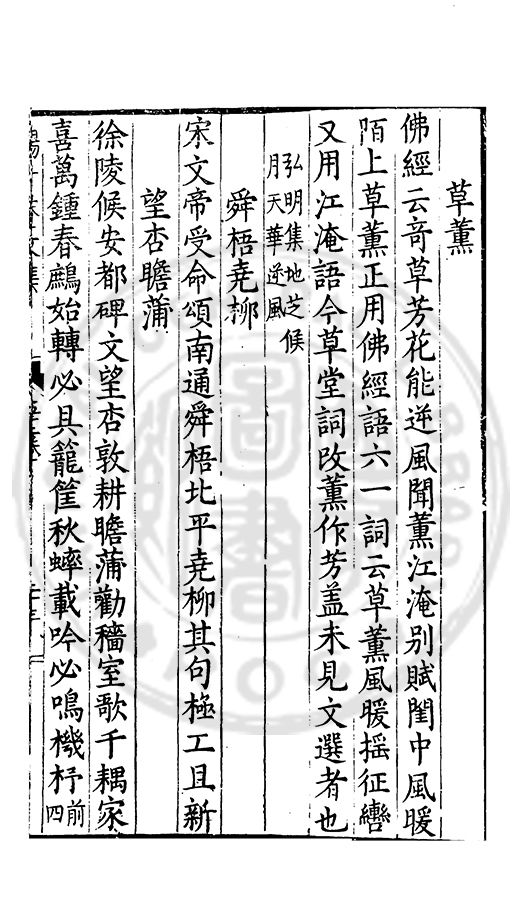 草薰
佛經云奇草芳花能逆風聞薰江淹别賦閨中風暖
陌上草薰正用佛經語六一詞云草薰風暖揺征轡
又用江淹語今草堂詞改薰作芳盖未見文選者也
弘明集地芝候
月天華逆風
舜梧尭桺
宋文帝受命頌南通舜梧北平尭柳其句極工且新
望杏瞻蒲
徐陵候安都碑文望杏敦耕瞻蒲勸穡室歌千耦家
喜萬鍾春鷓始轉必具籠筐秋蟀載吟必鳴機杼前
四